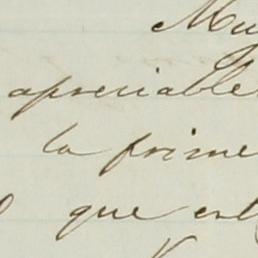 Mu
apreciable
la prime
que en